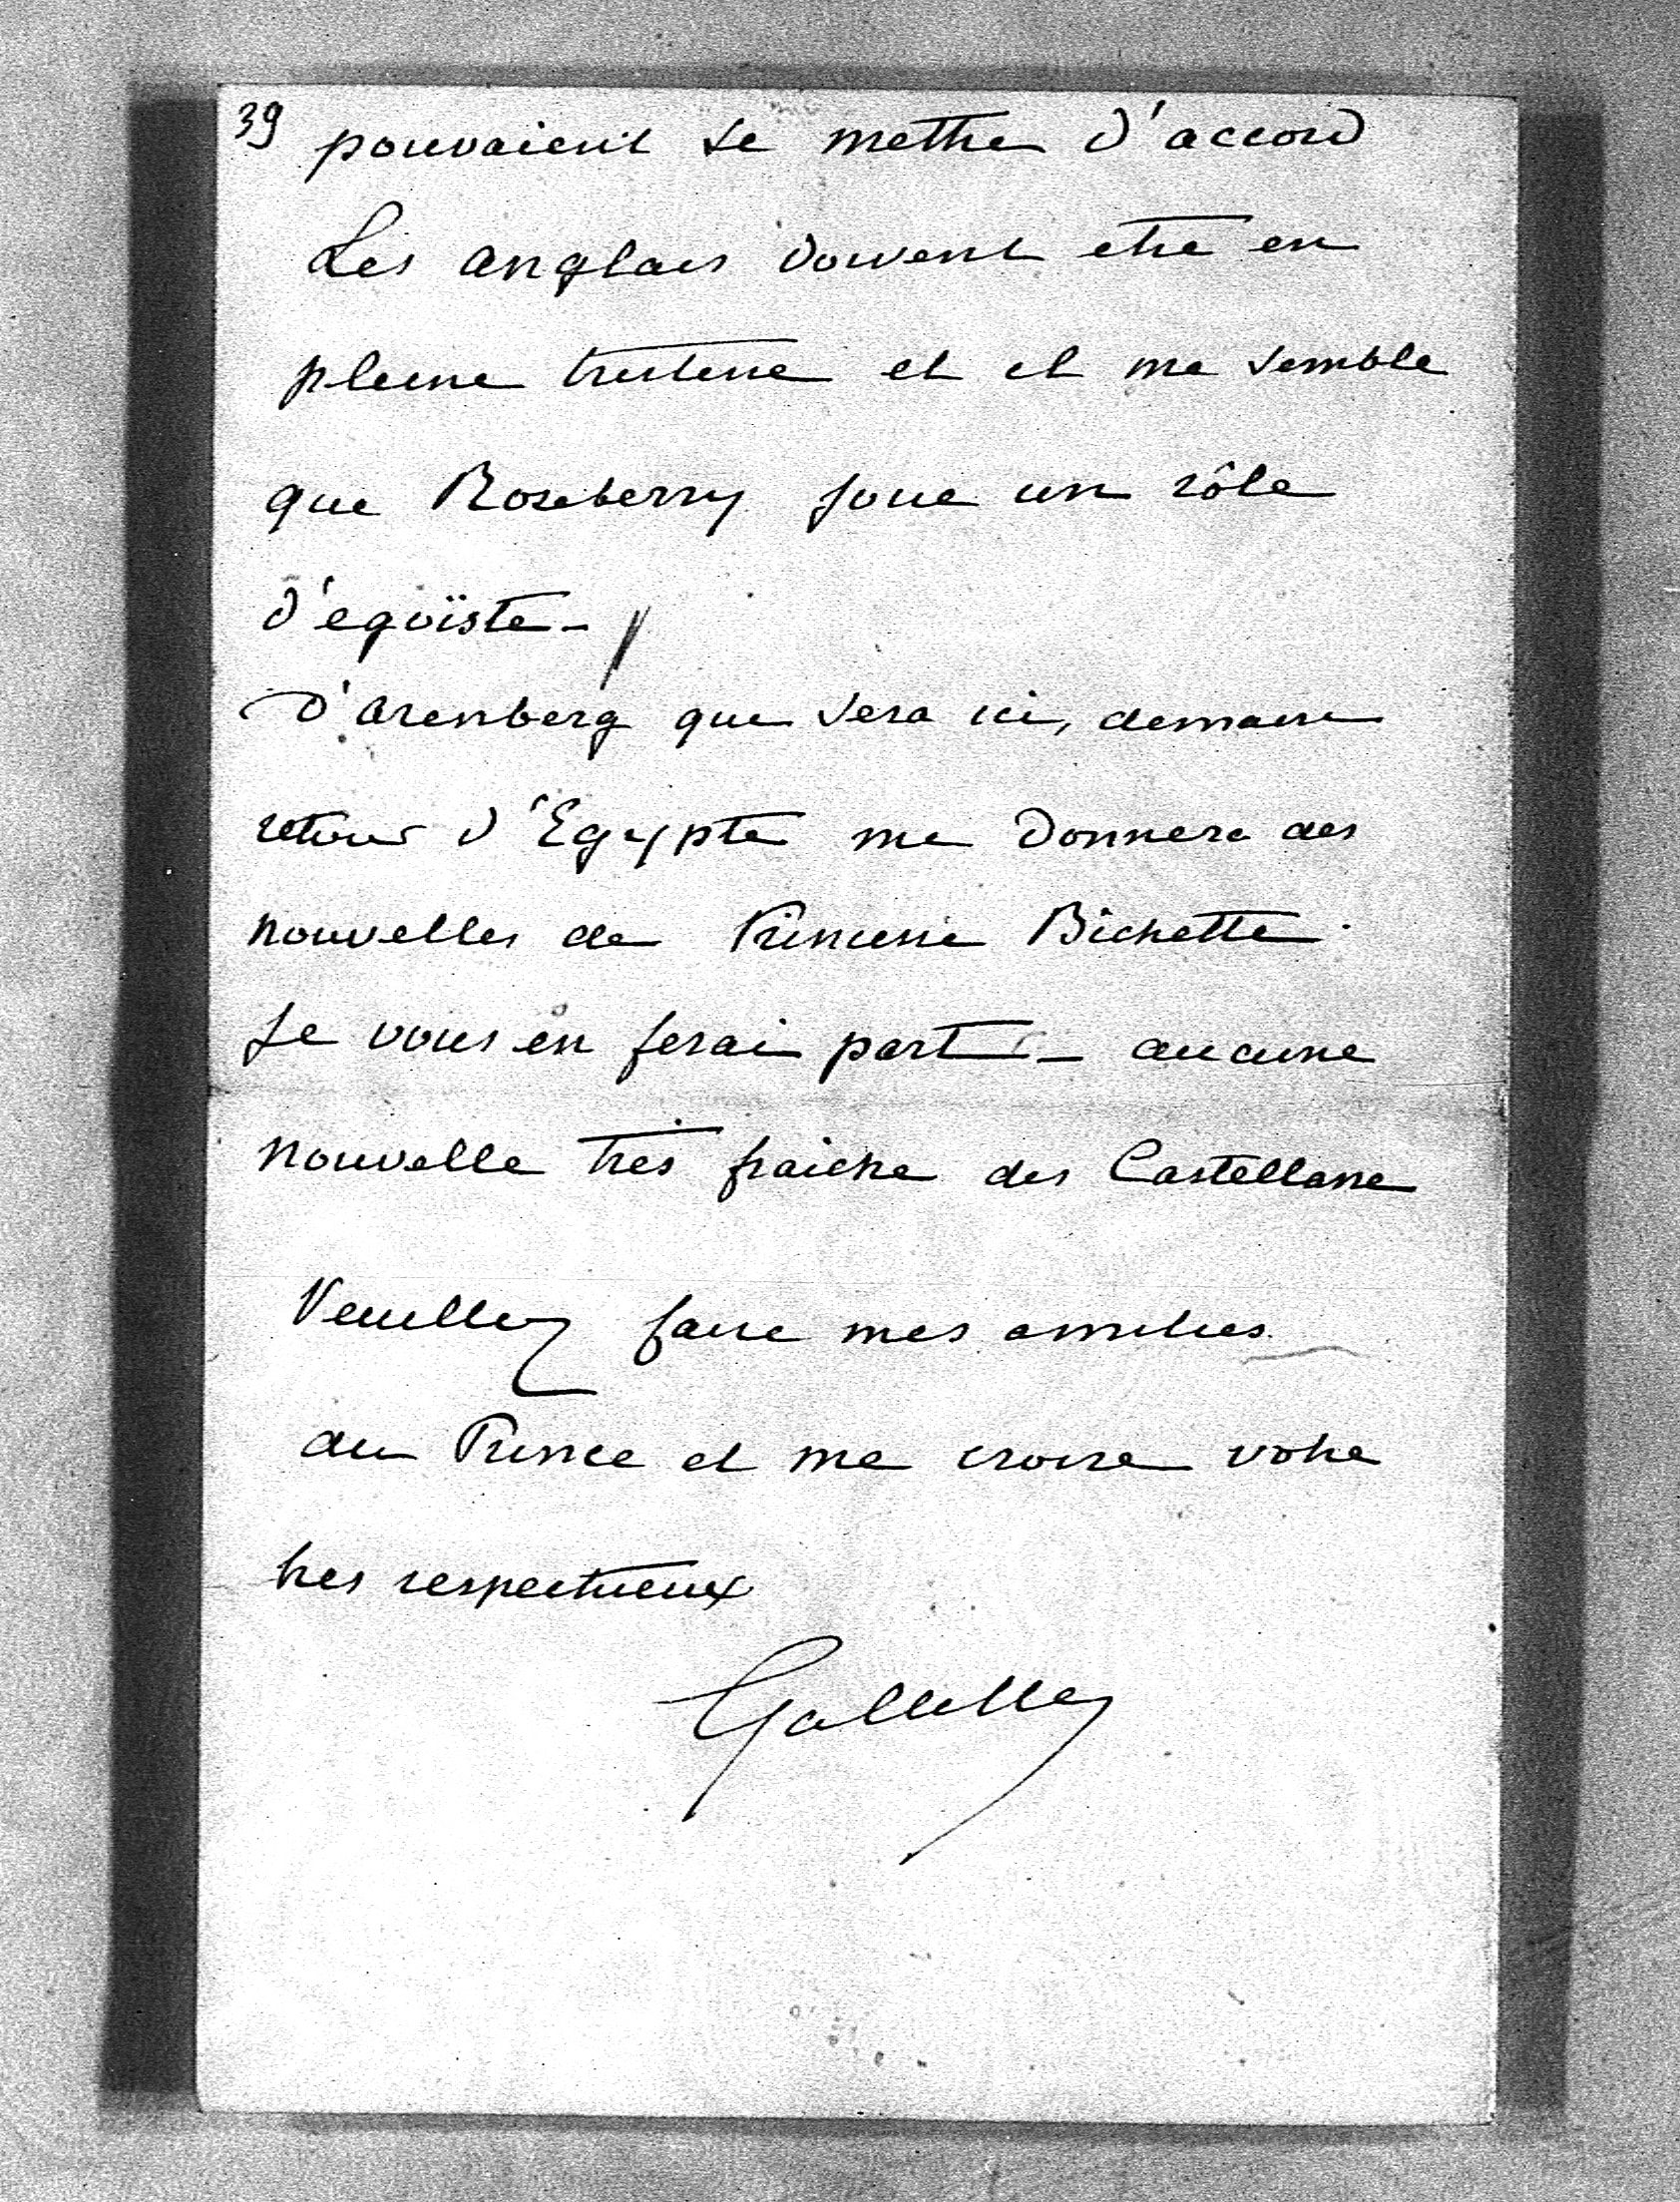 39 pouvaient se mettre d'accord
Les anglais doivent etre en
pleine tristesse et il me semble
que Roseberry joue un rôle
d'egoïste -
D'Arenberg qui sera ici, demain
retour d'Egypte me donnera des
nouvelles de Princesse Bichette.
Je vous en ferai part - aucune
nouvelle tres fraiche des Castellane
Veuillez faire mes amities
au Prince et me croire votre
tres respectueux
Galliffet